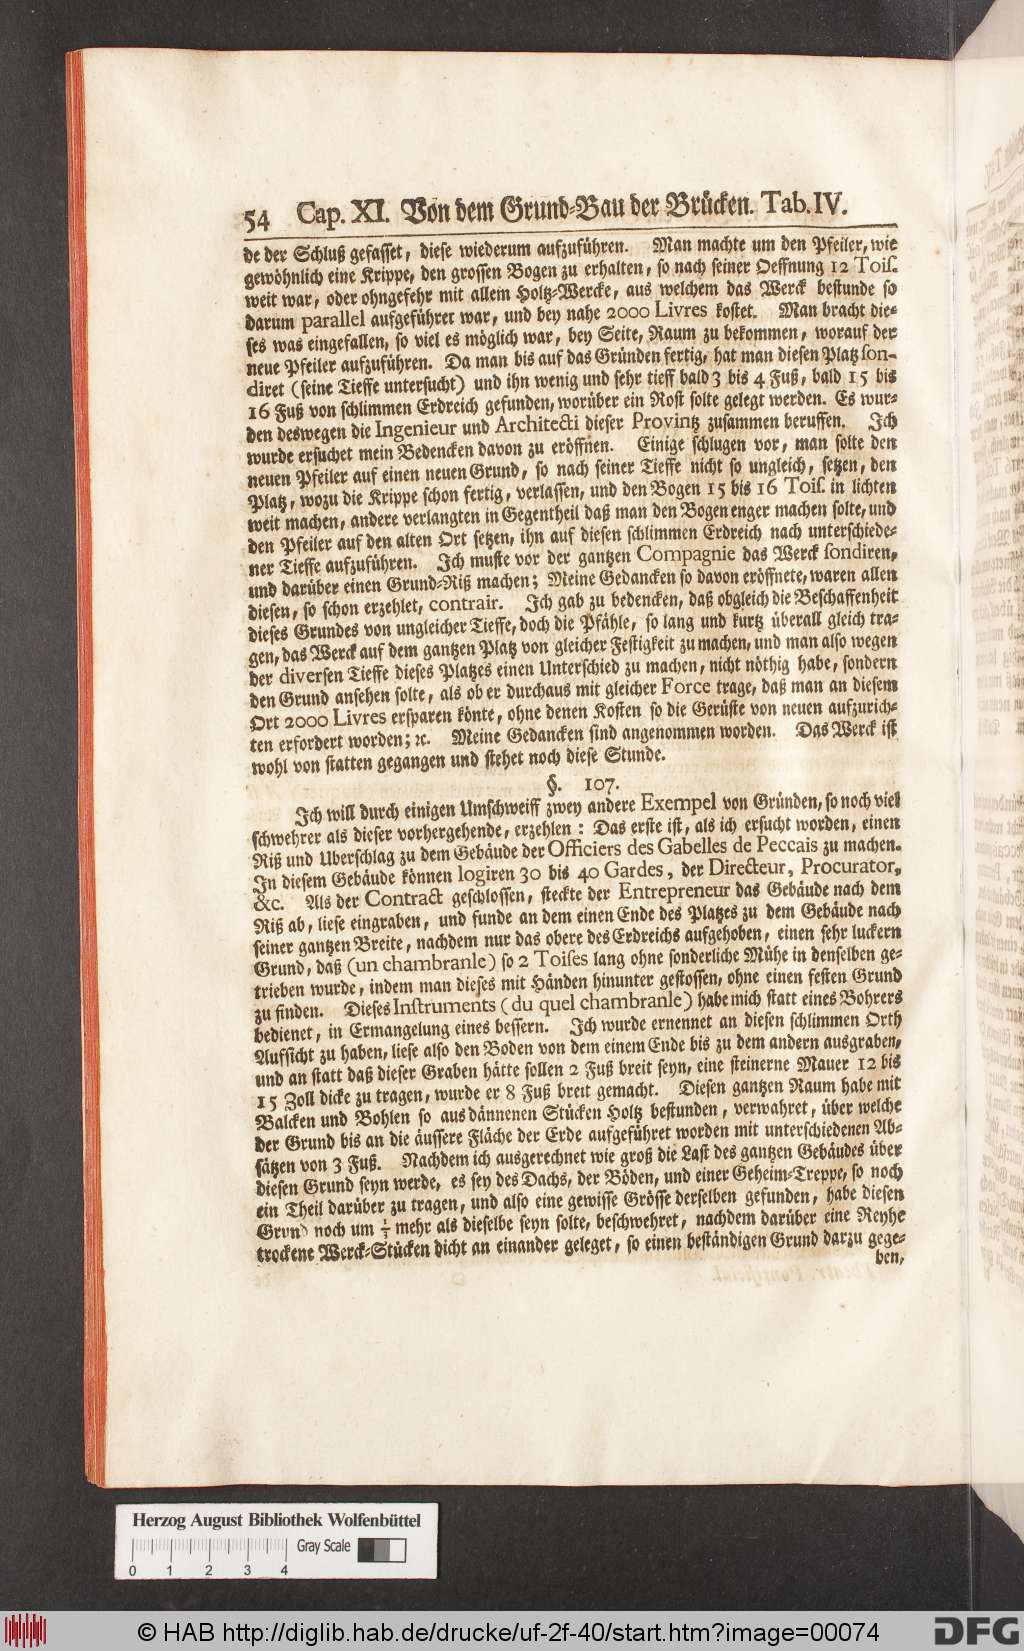 54 Cap. XI. Von dem Grund-Bau der Brücken. Tab. IV.
de der Schluß gefasset, diese wiederum aufzuführen. Man machte um den Pfeiler, wie
gewöhnlich eine Krippe, den grossen Bogen zu erhalten, so nach seiner Oeffnung 12 Tois.
weit war, oder ohngefehr mit allem Holtz-Wercke, aus welchem das Werck bestunde so
darum parallel aufgeführet war, und bey nahe 2000 Livres kostet. Man bracht die-
ses was eingefallen, so viel es möglich war, bey Seite, Raum zu bekommen, worauf der
neue Pfeiler aufzuführen. Da man bis auf das Gründen fertig, hat man diesen Platz son-
diret (seine Tieffe untersucht) und ihn wenig und sehr tieff bald 3 bis 4 Fuß, bald 15 bis
16 Fuß von schlimmen Erdreich gefunden, worüber ein Rost solte gelegt werden. Es wur-
den deswegen die Ingenieur und Architecti dieser Provintz zusammen beruffen. Ich
wurde ersuchet mein Bedencken davon zu eröffnen. Einige schlugen vor, man solte den
neuen Pfeiler auf einen neuen Grund, so nach seiner Tieffe nicht so ungleich, setzen, den
Platz, wozu die Krippe schon fertig, verlassen, und den Bogen 15 bis 16 Tois. in lichten
weit machen, andere verlangten in Gegentheil daß man den Bogen enger machen solte, und
den Pfeiler auf den alten Ort setzen, ihn auf diesen schlimmen Erdreich nach unterschiede-
ner Tieffe aufzuführen. Ich muste vor der gantzen Compagnie das Werck sondiren,
und darüber einen Grund-Riß machen; Meine Gedancken so davon eröffnete, waren allen
diesen, so schon erzehlet, contrair. Ich gab zu bedencken, daß obgleich die Beschaffenheit
dieses Grundes von ungleicher Tieffe, doch die Pfähle, so lang und kurtz überall gleich tra-
gen, das Werck auf dem gantzen Platz von gleicher Festigkeit zu machen, und man also wegen
der diversen Tieffe dieses Platzes einen Unterschied zu machen, nicht nöthig habe, sondern
den Grund ansehen solte, als ob er durchaus mit gleicher Force trage, daß man an diesem
Ort 2000 Livres ersparen könte, ohne denen Kosten so die Gerüste von neuen aufzurich-
ten erfordert worden; ꝛc. Meine Gedancken sind angenommen worden. Das Werck ist
wohl von statten gegangen und stehet noch diese Stunde.
§. 107.
Ich will durch einigen Umschweiff zwey andere Exempel von Gründen, so noch viel
schwehrer als dieser vorhergehende, erzehlen: Das erste ist, als ich ersucht worden, einen
Riß und Uberschlag zu dem Gebäude der Officiers des Gabelles de Peccais zu machen.
In diesem Gebäude können logiren 30 bis 40 Gardes, der Directeur, Procurator,
&c. Als der Contract geschlossen, steckte der Entrepreneur das Gebäude nach dem
Riß ab, liese eingraben, und funde an dem einen Ende des Platzes zu dem Gebäude nach
seiner gantzen Breite, nachdem nur das obere des Erdreichs aufgehoben, einen sehr luckern
Grund, daß (un chambranle) so 2 Toises lang ohne sonderliche Mühe in denselben ge-
trieben wurde, indem man dieses mit Händen hinunter gestossen, ohne einen festen Grund
zu finden. Dieses Instruments (du quel chambranle) habe mich statt eines Bohrers
bedienet, in Ermangelung eines bessern. Ich wurde ernennet an diesen schlimmen Orth
Aufsicht zu haben, liese also den Boden von dem einem Ende bis zu dem andern ausgraben,
und an statt daß dieser Graben hätte sollen 2 Fuß breit seyn, eine steinerne Mauer 12 bis
15 Zoll dicke zu tragen, wurde er 8 Fuß breit gemacht. Diesen gantzen Raum habe mit
Balcken und Bohlen so aus dännenen Stücken Holtz bestunden, verwahret, über welche
der Grund bis an die äussere Fläche der Erde aufgeführet worden mit unterschiedenen Ab-
sätzen von 3 Fuß. Nachdem ich ausgerechnet wie groß die Last des gantzen Gebäudes über
diesen Grund seyn werde, es sey des Dachs, der Böden, und einer Geheim-Treppe, so noch
ein Theil darüber zu tragen, und also eine gewisse Grösse derselben gefunden, habe diesen
Grund noch um mehr als dieselbe seyn solte, beschwehret, nachdem darüber eine Reyhe
trockene Werck-Stücken dicht an einander geleget, so einen beständigen Grund darzu gege-
ben,
Herzog August Bibliothek Wolfenbüttel
Gray Scale
0 1 2 3 4
© HAB http://diglib.hab.de/drucke/uf-2f-40/start.htm?image=00074
DFG